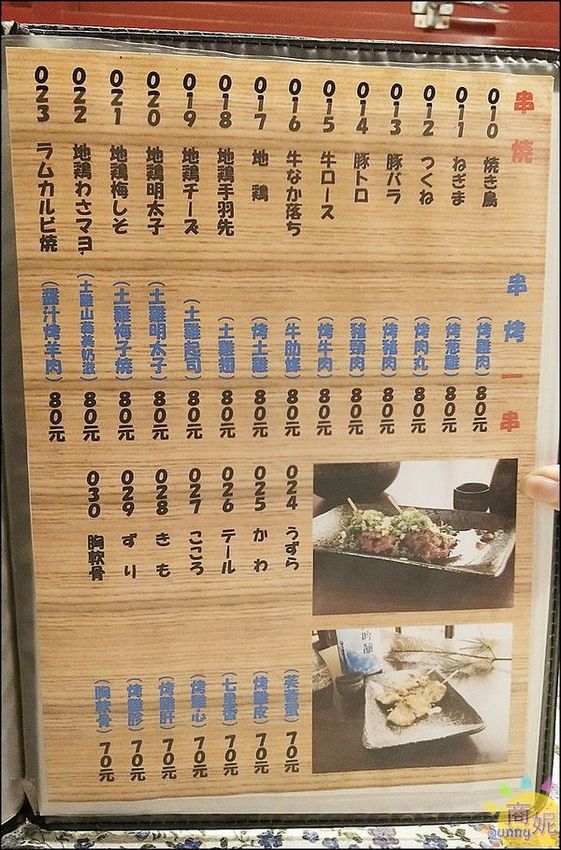 串焼
串烤一串
010 焼き鳥 (烤雞肉) 80元
011 ねぎま (烤蔥雞) 80元
012 つくね (烤肉丸) 80元
013 豚バラ (烤豬肉) 80元
014 豚トロ (豬頸肉) 80元
015 牛ロース (烤牛肉) 80元
016 牛なか落ち (牛肋條) 80元
017 地鶏 (烤土雞) 80元
018 地鶏手羽先 (土雞翅) 80元
019 地鶏チーズ (土雞起司) 80元
020 地鶏明太子 (土雞明太子) 80元
021 地鶏梅しそ (土雞梅子燒) 80元
022 地鶏わさマヨ (土雞山葵美奶滋) 80元
023 ラムカルビ焼 (醬汁烤羊肉) 80元
024 うずら 70元
025 かわ (烤雞皮) 70元
026 テール (七里香) 70元
027 こころ (烤雞心) 70元
028 きも (烤雞肝) 70元
029 ずり (烤雞胗) 70元
030 胸軟骨 (胸軟骨) 70元
吟釀
商妮
Sunny